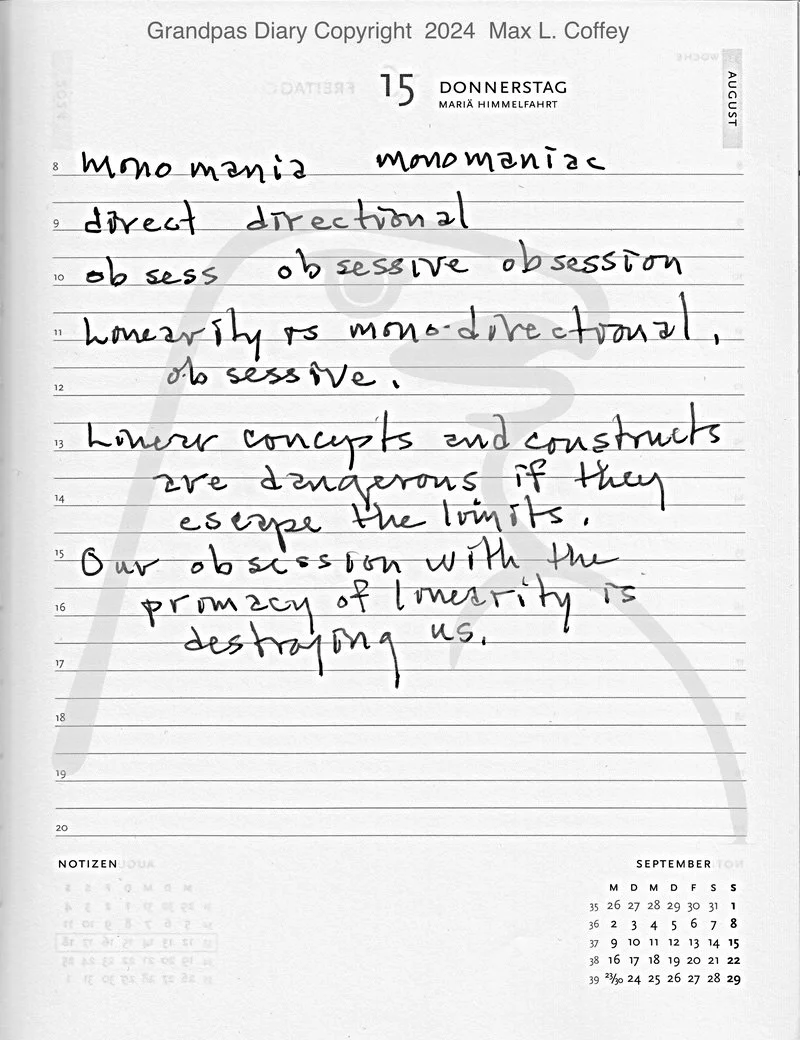 Grandpas Diary Copyright 2024 Max L. Coffey
WOCHE
FREITAG
15 DONNERSTAG
MARIÄ HIMMELFAHRT
AUGUST
8 mono mania monomaniac
9 direct directional
10 ob sess ob sessive ob session
11 Linearity is mono-directional,
12 ob sessive.
13 Linear concepts and constructs
are dangerous if they
14 escape the limits.
15 Our obsession with the
16 primacy of linearity is
destroying us.
17
18
19
20
NOTIZEN
SEPTEMBER
M D M D F S S
35 26 27 28 29 30 31 1
36 2 3 4 5 6 7 8
37 9 10 11 12 13 14 15
38 16 17 18 19 20 21 22
39 23/30 24 25 26 27 28 29